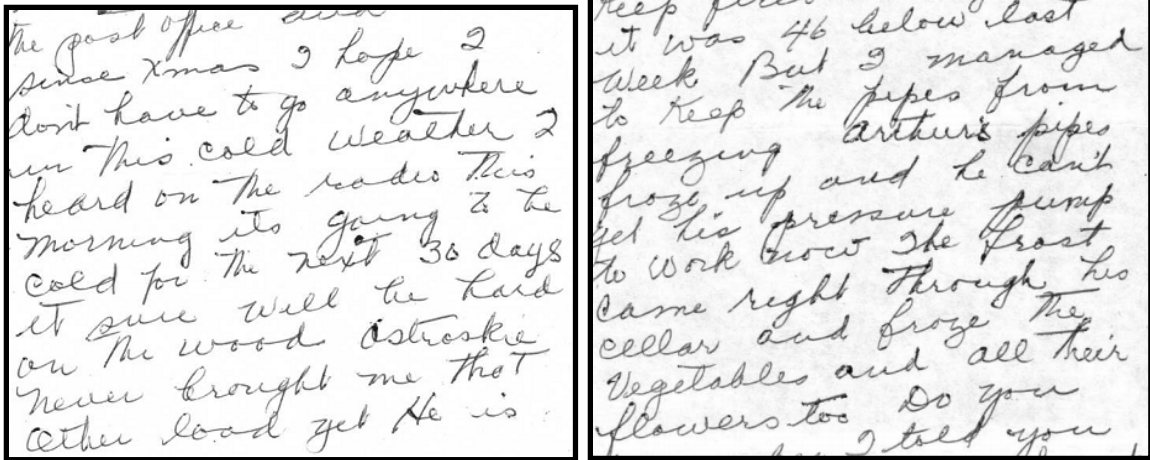 the post office and
since Xmas I hope I
don't have to go anywhere
in this cold weather I
heard on the radio this
morning its going to be
cold for the next 30 days
it sure will be hard
on the wood Ostroskie
never brought me that
other load yet He is
keep
it was 46 below last
Week But I managed
to Keep the pipes from
freezing arthur's pipes
froze up and he can't
get his pressure pump
to work now The frost
came right through his
cellar and froze the
Vegetables and all their
flowers too Do you
I told you